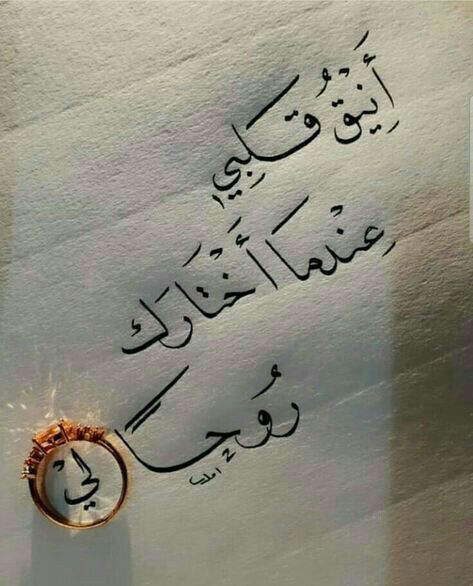 أَنِيْقُ قَلِبِي
عِنْدمَا أَخْتَارَك
رُوَحاً لِيْ